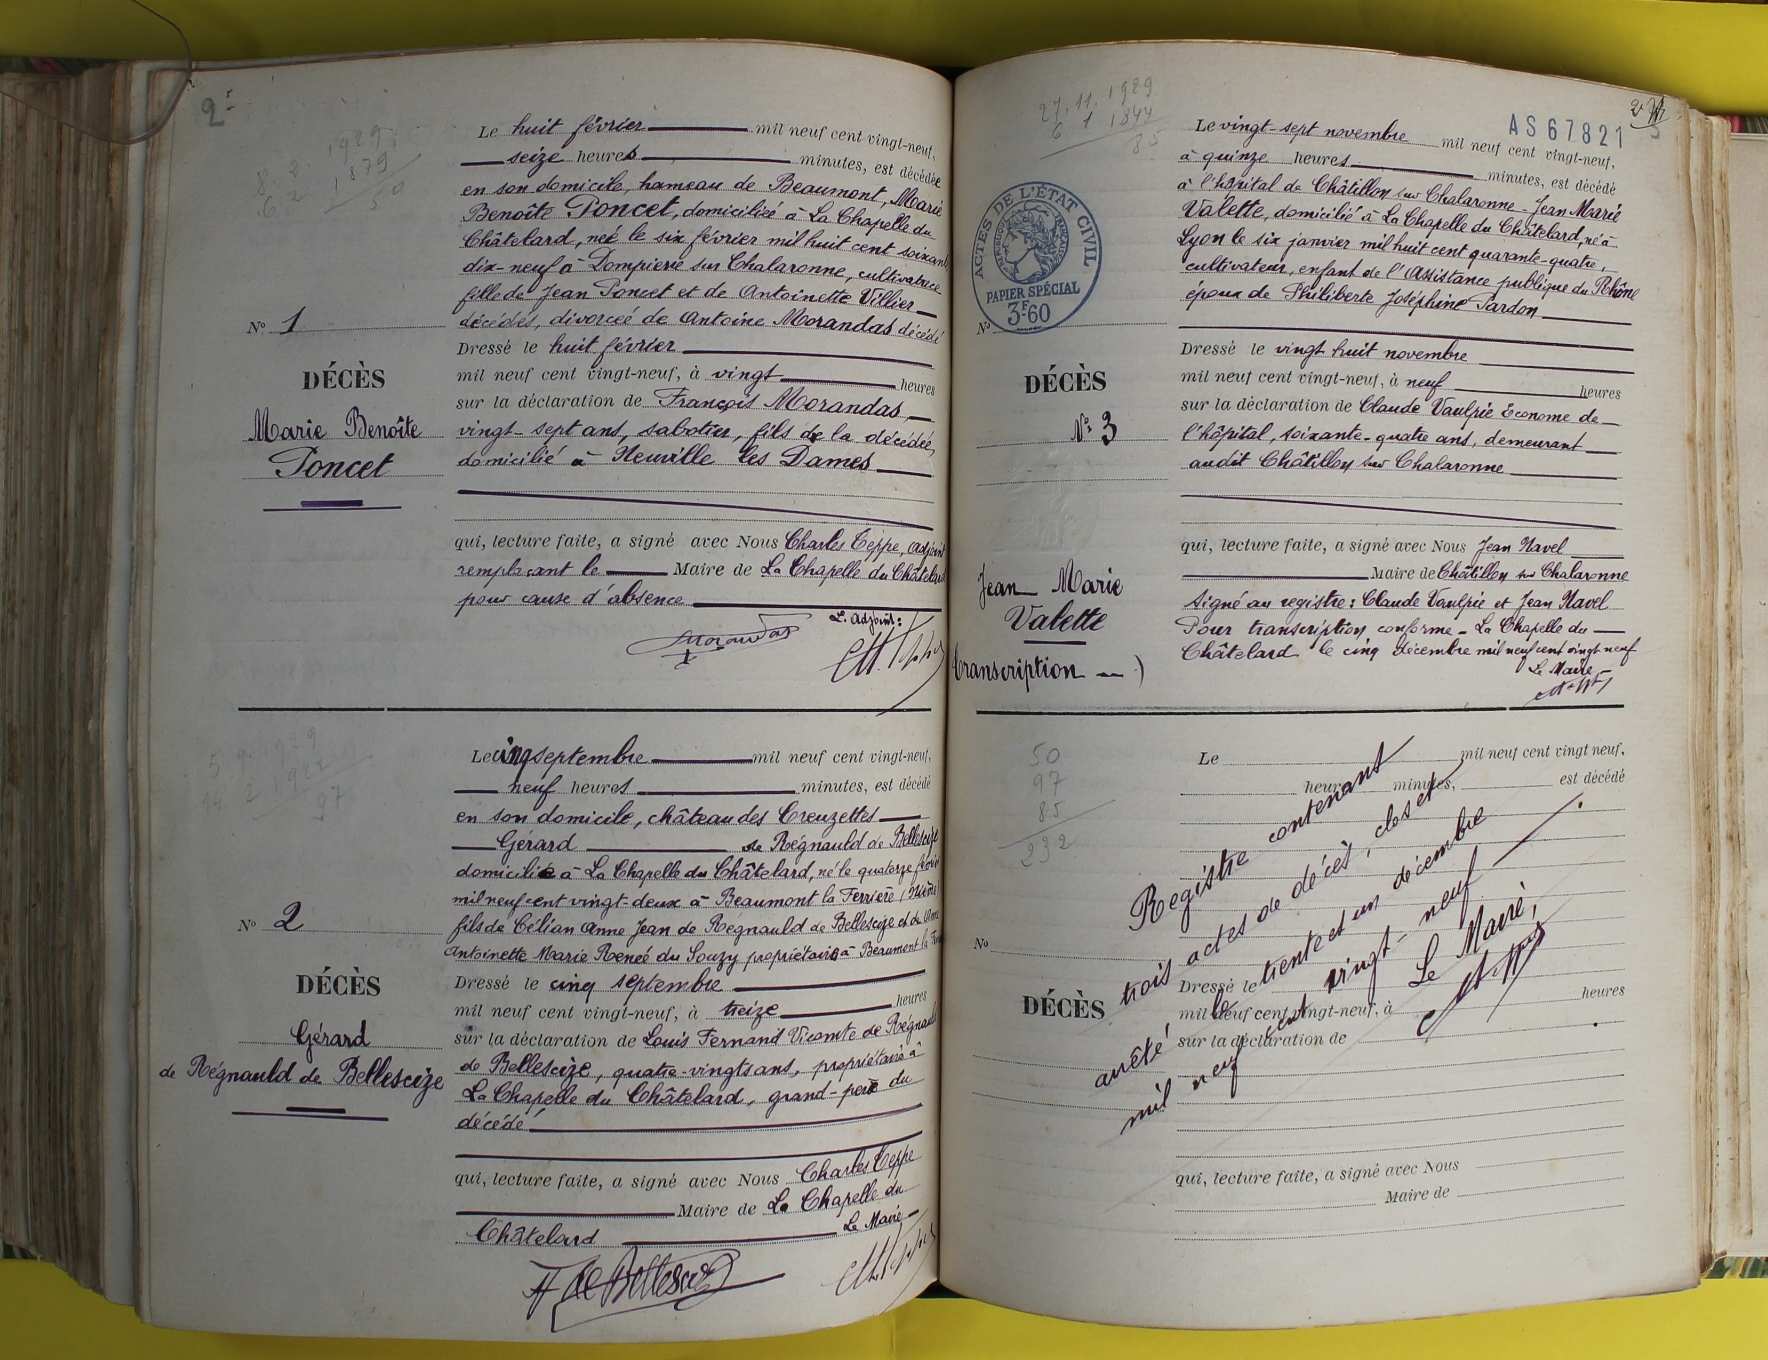 2
8. 2. 1929
6. 2 1879
50
Le huit février mil neuf cent vingt-neuf,
seize heures minutes, est décédée
en son domicile, hameau de Beaumont, Marie
Benoîte Poncet, domiciliée à La Chapelle du
Châtelard, née le six février mil huit cent soixante
dix-neuf à Dompierre sur Chalaronne, cultivatrice
fille de Jean Poncet et de Antoinette Villier
décédés, divorcée de Antoine Morandas décédé
Nº 1
DÉCÈS
Marie Benoîte
Poncet
Dressé le huit février
mil neuf cent vingt-neuf, à vingt heures
sur la déclaration de François Morandas
vingt-sept ans, sabotier, fils de la décédée,
domicilié à Neuville les Dames
qui, lecture faite, a signé avec Nous Charles Teppe, adjoint
remplaçant le Maire de La Chapelle du Châtelard
pour cause d'absence
L'adjoint:
Morandas
Ch. Teppe
5 9. 1929
14 2 1922
97
Le cinq septembre mil neuf cent vingt-neuf,
neuf heures minutes, est décédé
en son domicile, château des Creuzettes
Gérard de Régnauld de Bellescize
domicilié à La Chapelle du Châtelard, né le quatorze février
mil neuf cent vingt-deux à Beaumont la Ferrière (Nièvre)
fils de Célian Anne Jean de Regnauld de Bellescize et de
Antoinette Marie Renée du Souzy propriétaires à Beaumont la
Nº 2
DÉCÈS
Gérard
de Régnauld de Bellescize
Dressé le cinq septembre
mil neuf cent vingt-neuf, à treize heures
sur la déclaration de Louis Fernand Vicomte de Régnauld
de Bellescize, quatre-vingts ans, propriétaire à
La Chapelle du Châtelard, grand-père du
décédé
qui, lecture faite, a signé avec Nous Charles Teppe
Maire de La Chapelle du
Châtelard Le Maire
F de Bellescize
Ch. Teppe
27. 11. 1929
6 1 1844
85
AS 67821
ACTES DE L'ÉTAT CIVIL
PAPIER SPÉCIAL
3F60
Le vingt-sept novembre mil neuf cent vingt-neuf,
à quinze heures minutes, est décédé
à l'hôpital de Châtillon sur Chalaronne Jean Marie
Valette, domicilié à La Chapelle du Châtelard, né à
Lyon le six janvier mil huit cent quarante-quatre,
cultivateur, enfant de l'Assistance publique du Rhône
époux de Philiberte Joséphine Pardon
Nº
DÉCÈS
Nº 3
Jean Marie
Valette
(transcription)
Dressé le vingt huit novembre
mil neuf cent vingt-neuf, à neuf heures
sur la déclaration de Claude Vaulpié Econome de
l'hôpital, soixante-quatre ans, demeurant
audit Châtillon sur Chalaronne
qui, lecture faite, a signé avec Nous Jean Navel
Maire de Châtillon sur Chalaronne
Signé au registre: Claude Vaulpié et Jean Navel
Pour transcription conforme - La Chapelle du
Châtelard le cinq décembre mil neuf cent vingt neuf
Le Maire
50
97
85
232
Le mil neuf cent vingt neuf,
heures minutes, est décédé
Nº
DÉCÈS
Dressé le
mil neuf cent vingt-neuf, à heures
sur la déclaration de
qui, lecture faite, a signé avec Nous
Maire de
Registre contenant
trois actes de décès, clos et
arrêté le trente et un décembre
mil neuf cent vingt-neuf
Le Maire,